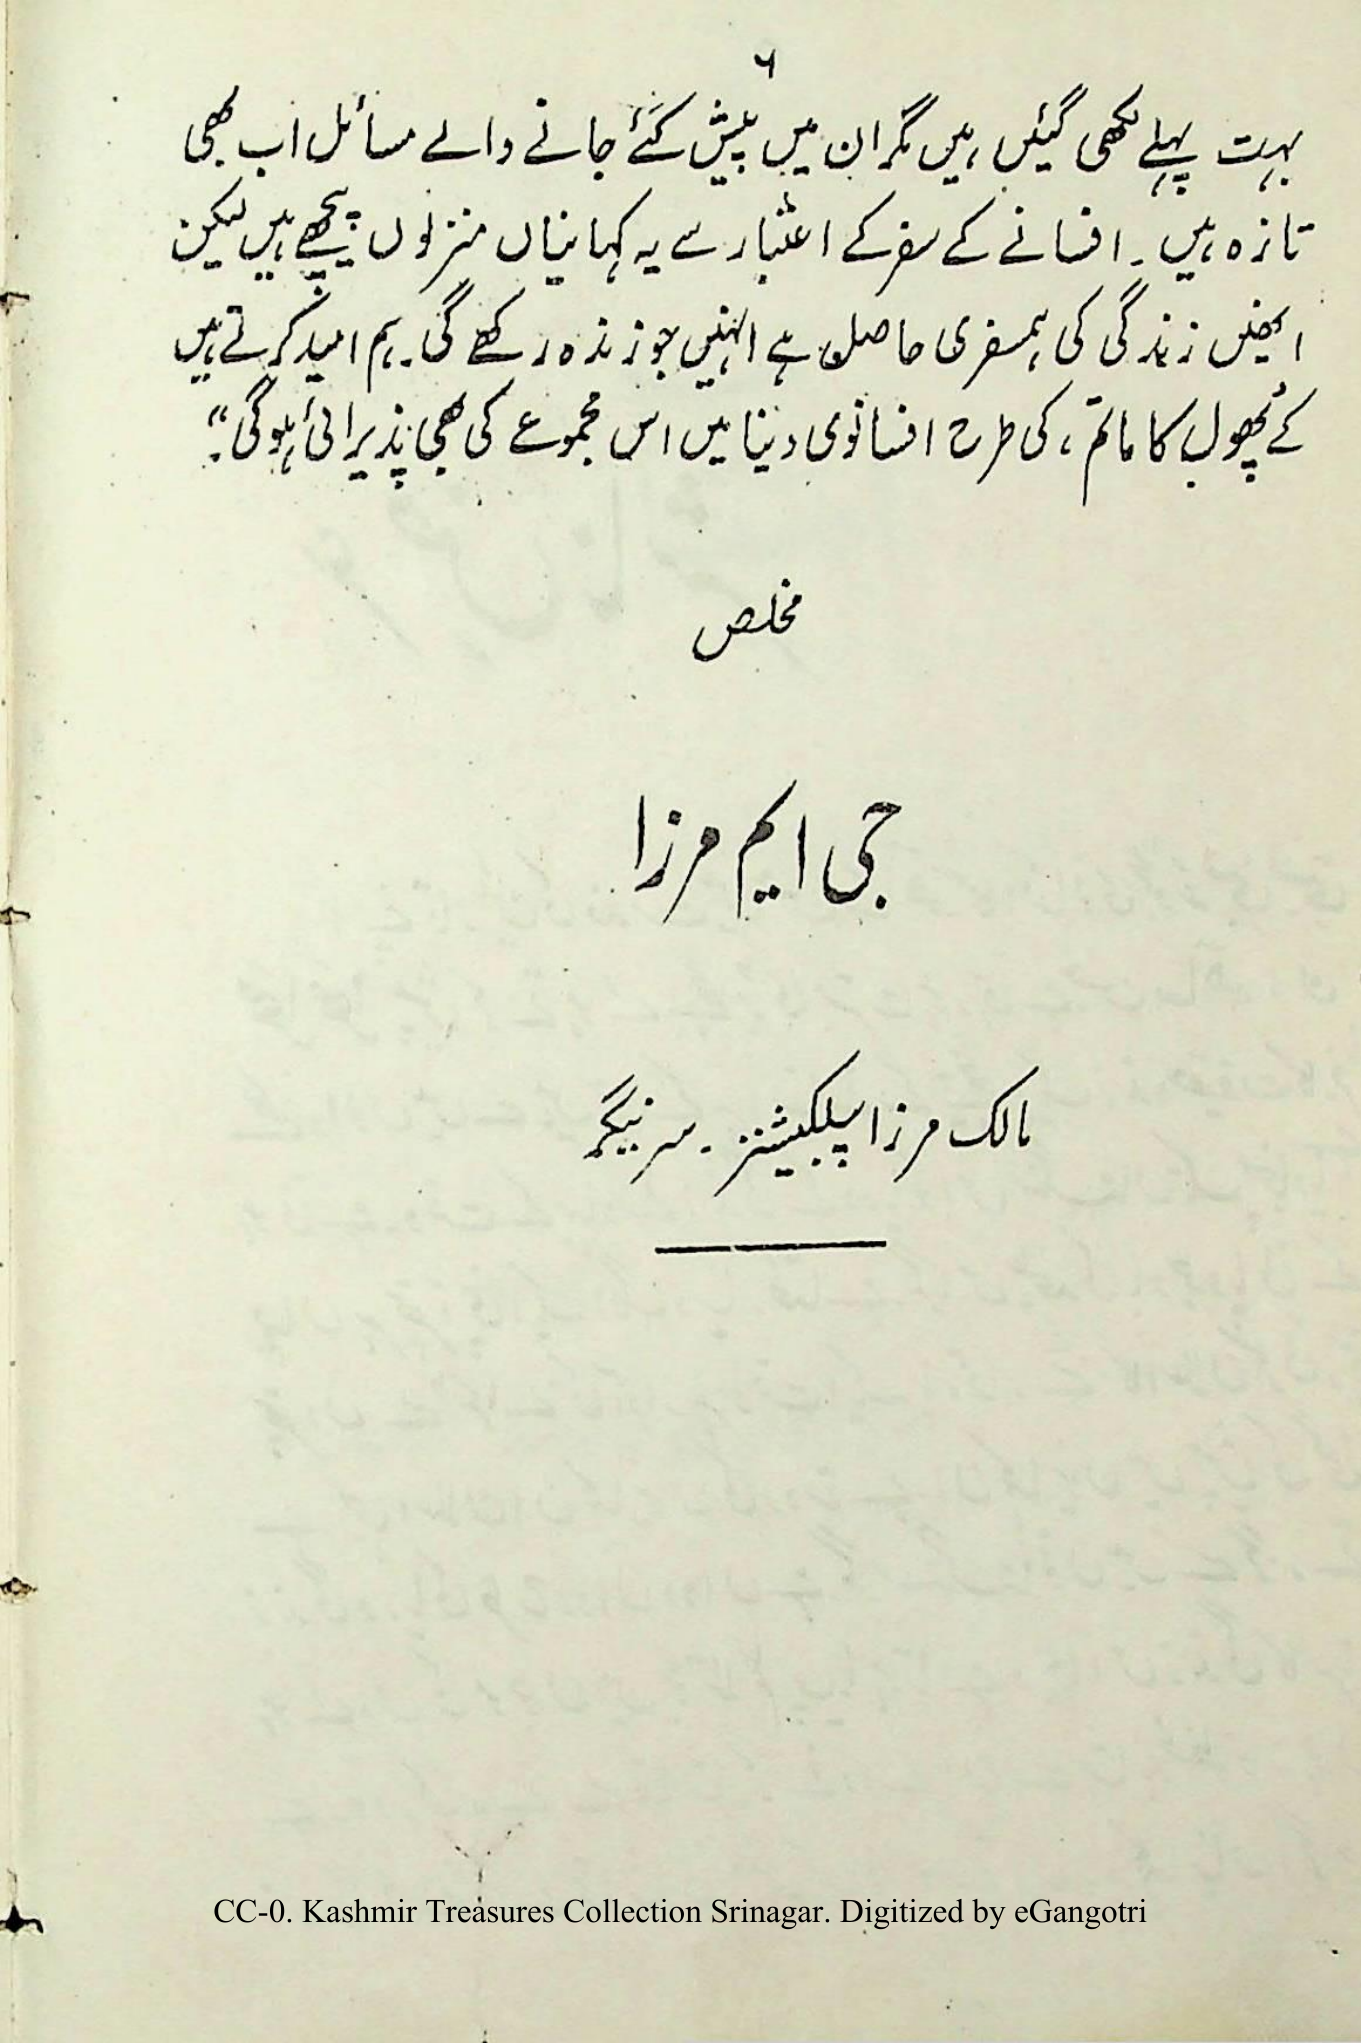 ۶
بہت پہلے لکھی گئیں ہیں مگر ان میں پیش کئے جانے والے مسائل اب بھی
تازہ ہیں۔ افسانے کے سفر کے اعتبار سے یہ کہانیاں منزلوں پیچھے ہیں لیکن
انھیں زندگی کی ہمسفری حاصل ہے انہیں جو زندہ رکھے گی۔ ہم امید کرتے ہیں
کے پھول کا ماتم، کی طرح افسانوی دنیا میں اس مجموعے کی بھی پذیرائی ہوگی۔"
مخلص
جی ایم مرزا
مالک مرزا پبلکیشنز۔ سرینگر
CC-0. Kashmir Treasures Collection Srinagar. Digitized by eGangotri